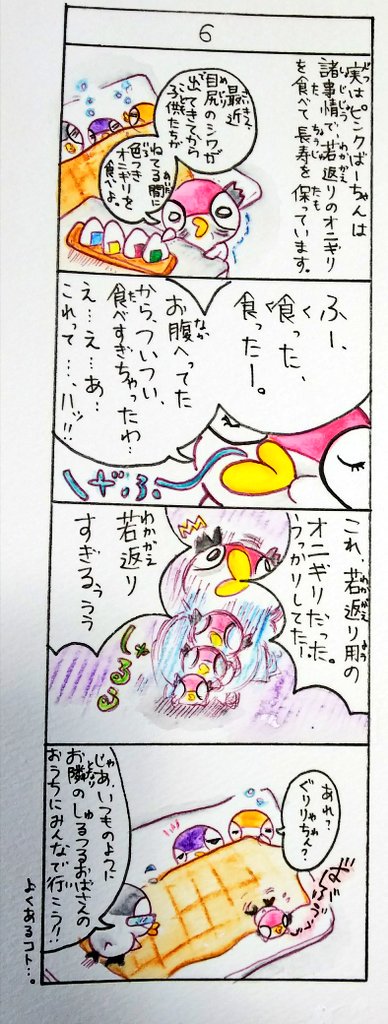 6
実はピンクばーちゃんは
諸事情で、若返りのオニギリ
を食べて長寿を保っています。
最近
目尻のシワが
出てきてから
子供たちが
ねてる間に
色つき
オニギリを
食べよ。
ふー、
喰った、
食ったー。
お腹へってた
から、ついつい、
食べすぎちゃったわ…
え…え…あ…
これって…、ハッ!!
げふ
これ、若返り用の
オニギリだった。
うっかりしてたー!
若返り
すぎるぅぅぅ
しゅる
あれ?
ぐりりちゃん?
ばぶぅ
じゃあ、いつものように
お隣のしるつるおばさんの
おうちにみんなで行こう!!
よくあるコト…。